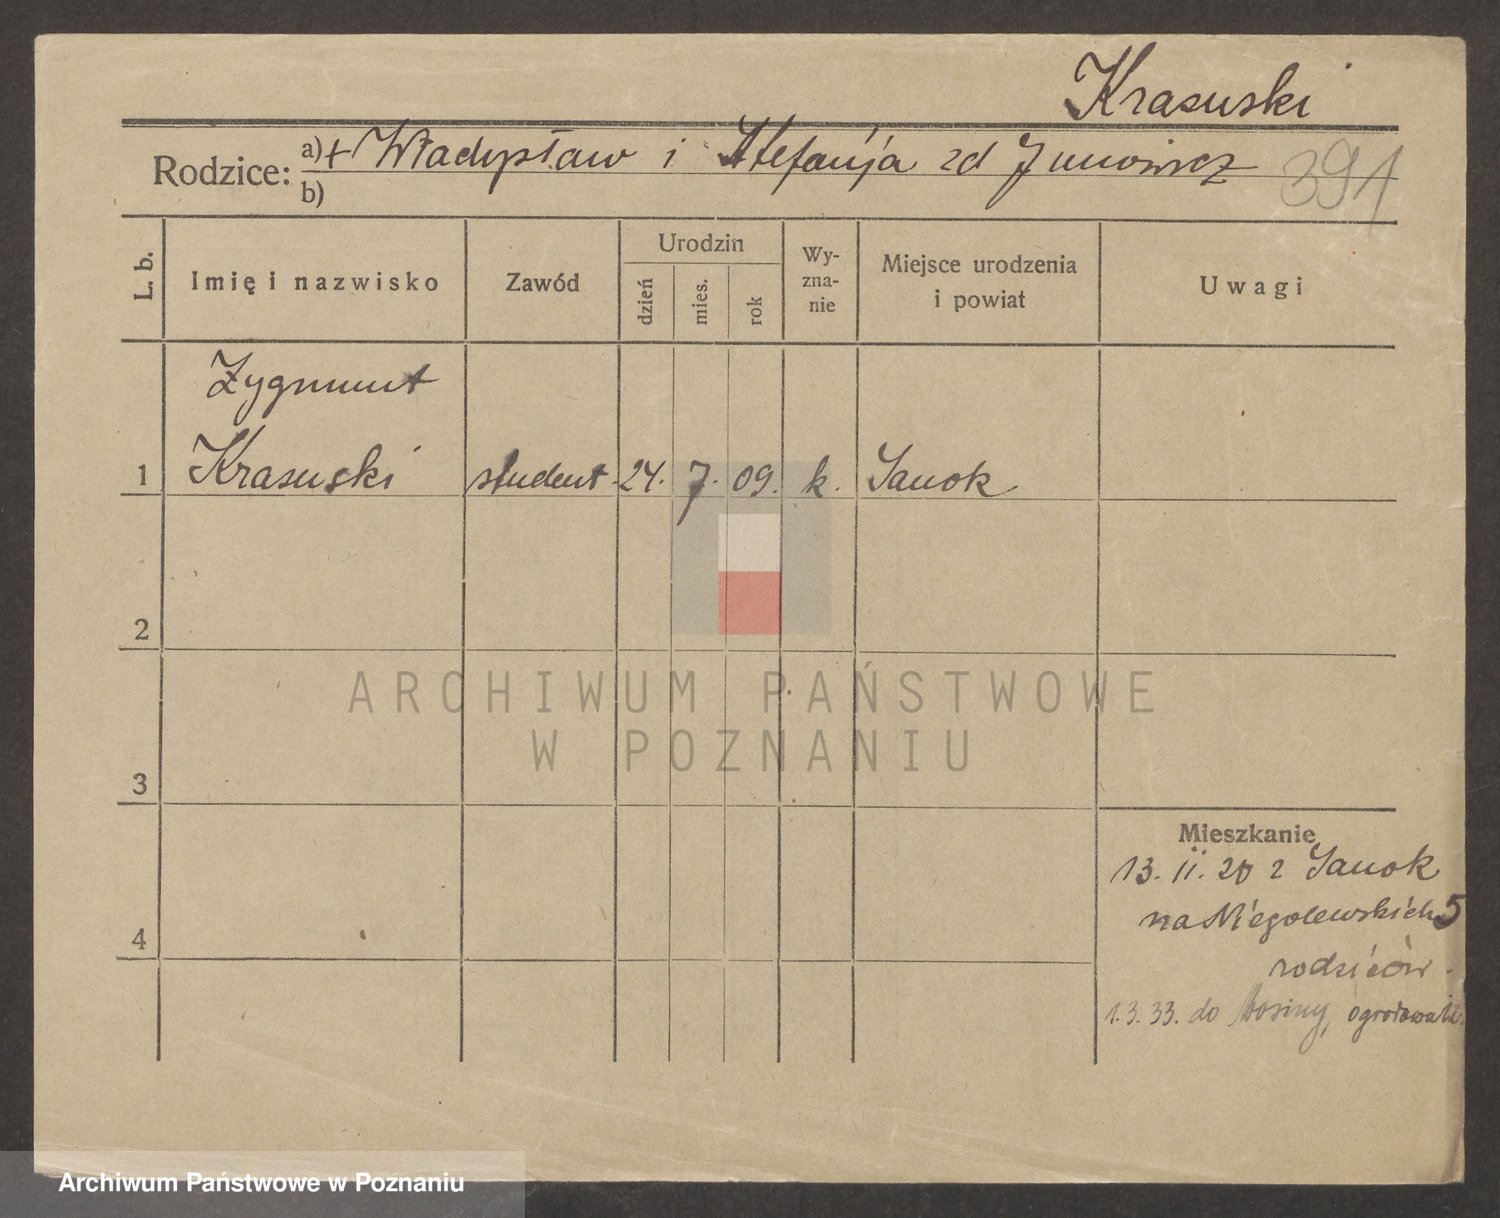 Krasuski
Rodzice: a) + Władysław i Stefanja zd
391
b)
L. b.
Imię i nazwisko
Zawód
Urodzin
dzień
mies.
rok
Wy-
zna-
nie
Miejsce urodzenia
i powiat
Uwagi
Zygmunt
1 Krasuski student 24. 7. 09. k. Sanok
2
3
4
Mieszkanie
13. II. 20 z Sanok
na Niegolewskich 5
rodziców.
1.3.33. do Mosiny,
ARCHIWUM PAŃSTWOWE
W POZNANIU
Archiwum Państwowe w Poznaniu